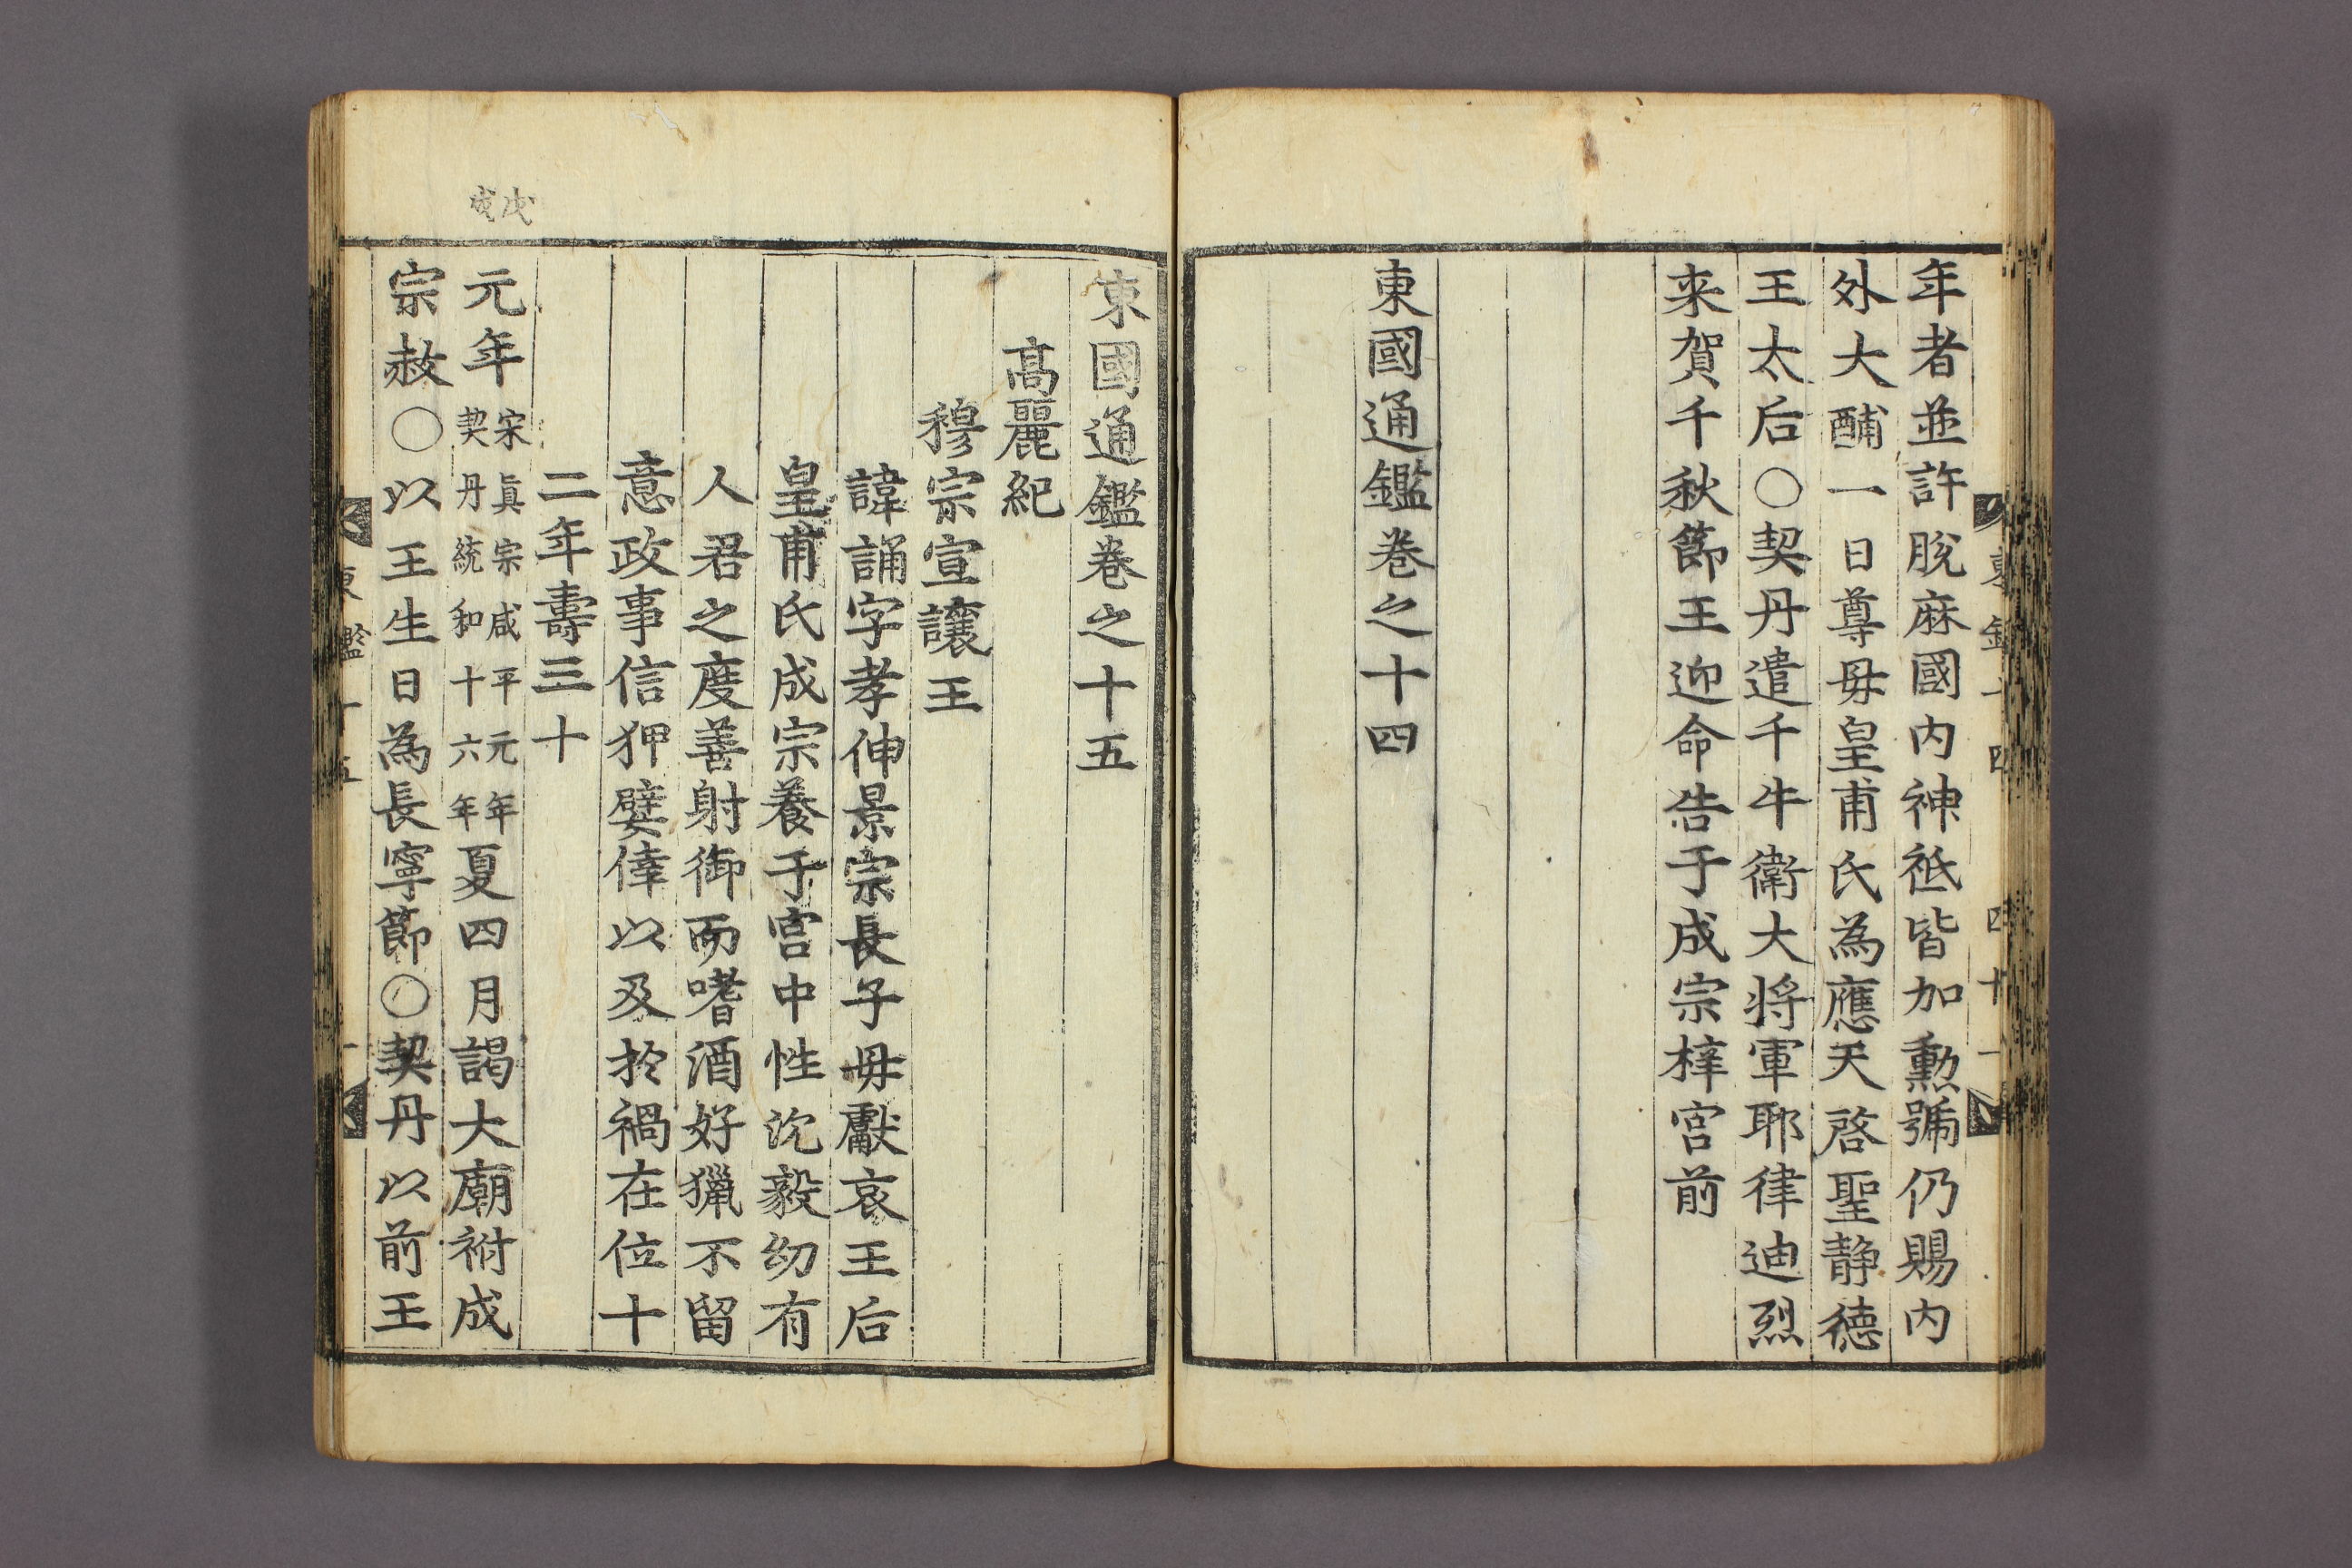 年者並許脫麻國内神祗皆加勲號仍賜内
外大酺一日尊母皇甫氏為應天啓聖静德
王太后○契丹遣千牛衛大将軍耶律迪烈
来賀千秋節王迎命告于成宗梓宮前
東國通鑑卷之十四
東國通鑑卷之十五
高麗紀
穆宗宣讓王
諱誦字孝伸景宗長子母獻哀王后
皇甫氏成宗養于宮中性沈毅幼有
人君之度善射御而嗜酒好獵不留
意政事信狎嬖倖以及於禍在位十
二年壽三十
戊戌
元年宋眞宗咸平元年契丹統和十六年夏四月謁大廟祔成
宗赦○以王生日為長寧節○契丹以前王
東鑑十五 一